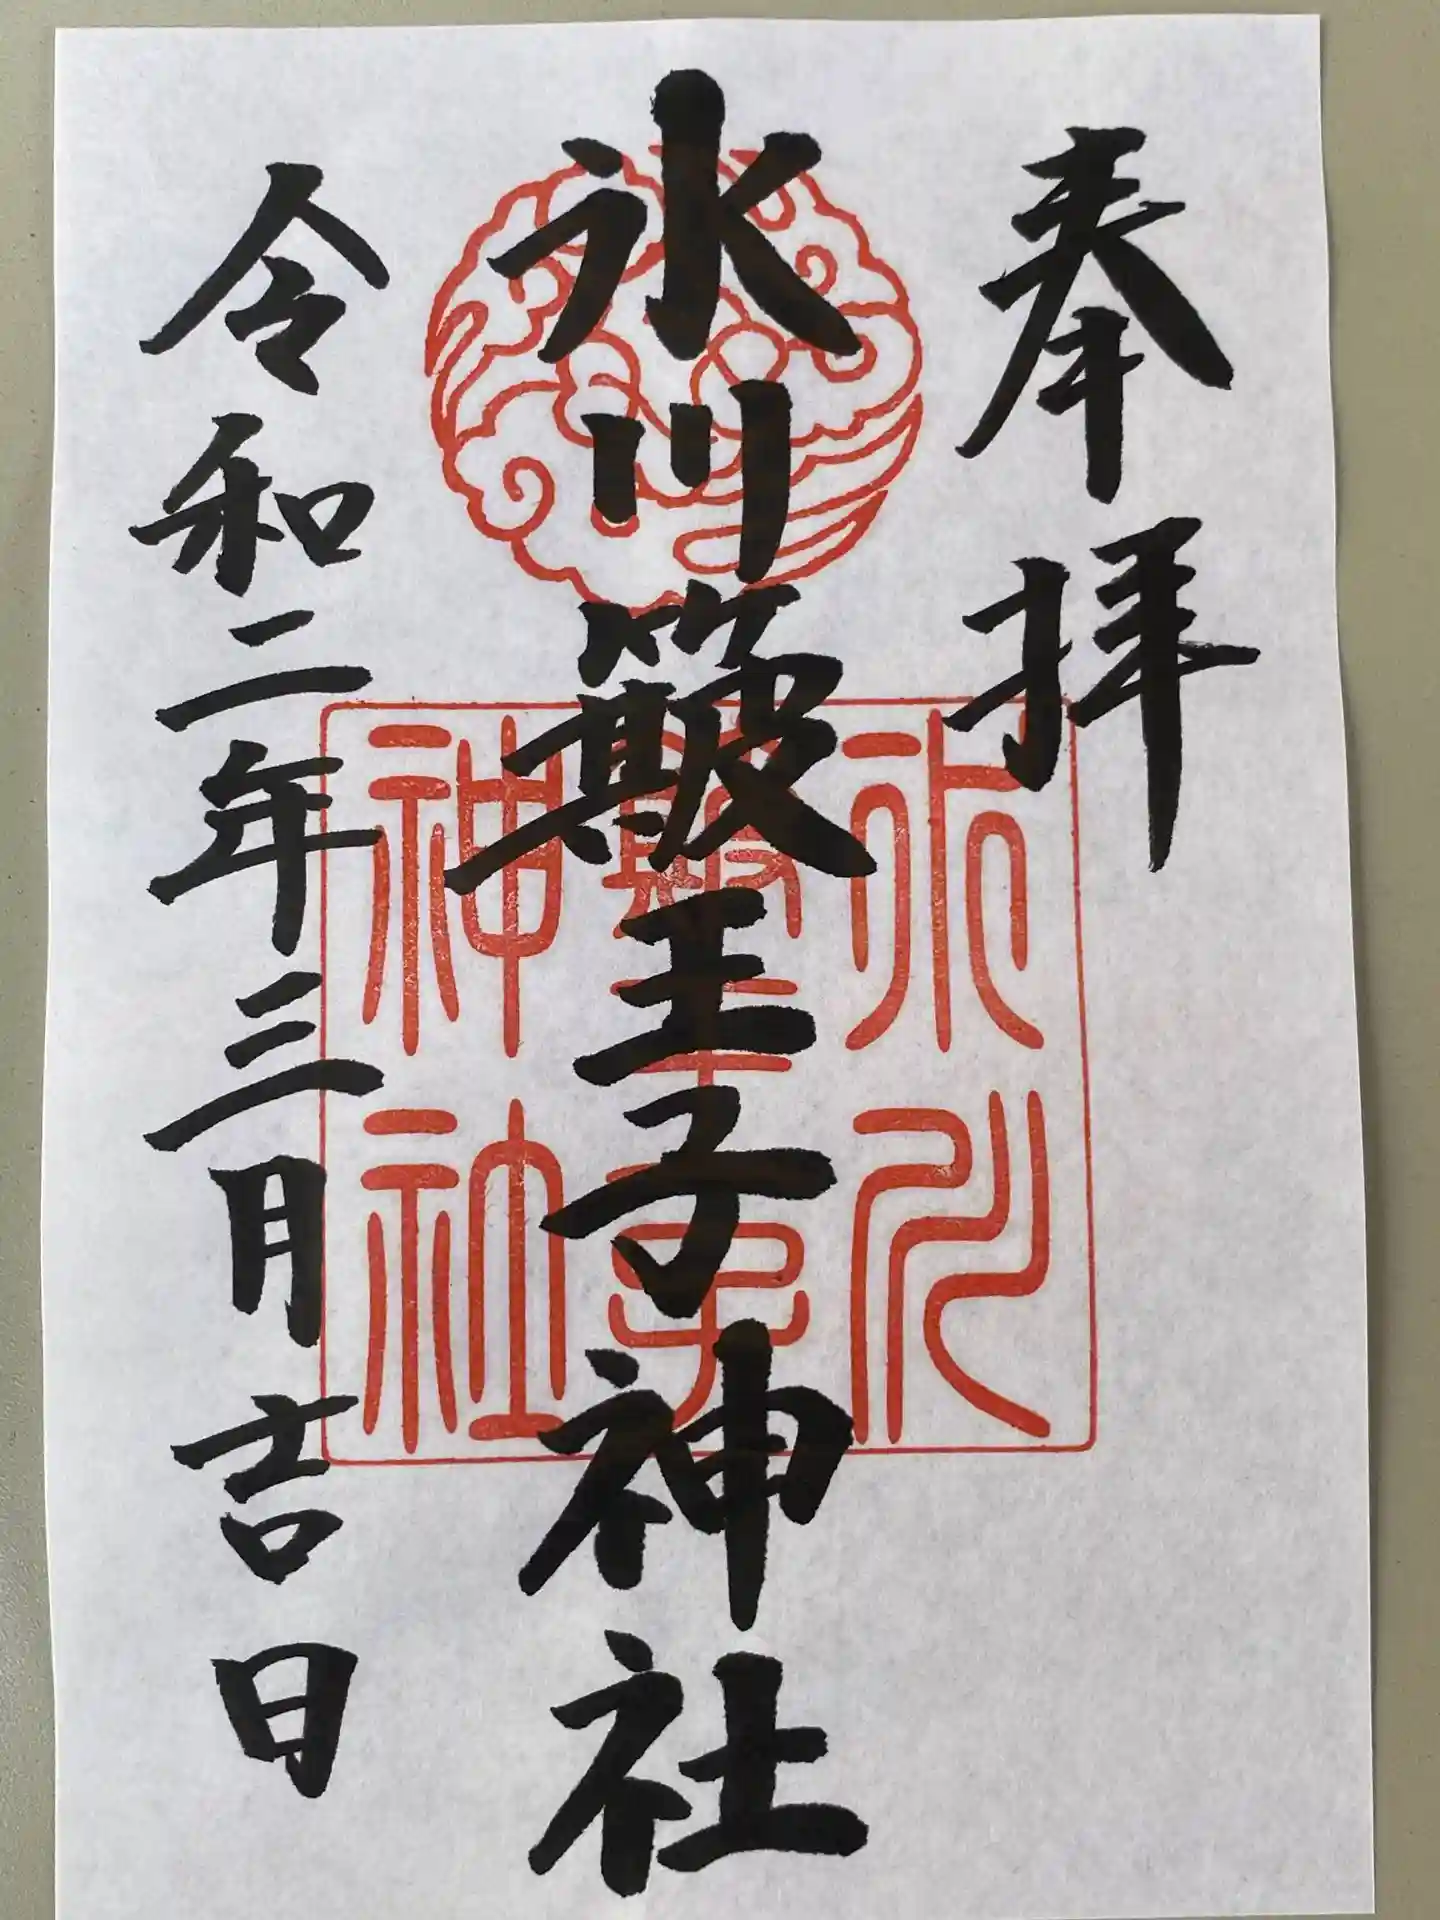 奉拝
氷川簸王子神社
令和二年三月吉日
氷川
簸王子
神社